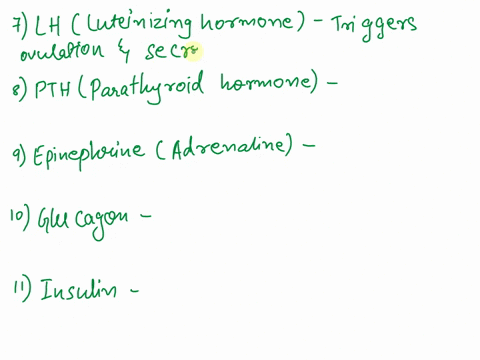 7) LH (Luteinizing hormone) - Triggers
ovulation & secr
8) PTH (Parathyroid hormone) -
9) Epinephrine (Adrenaline) -
10) Glucagon -
11) Insulin -